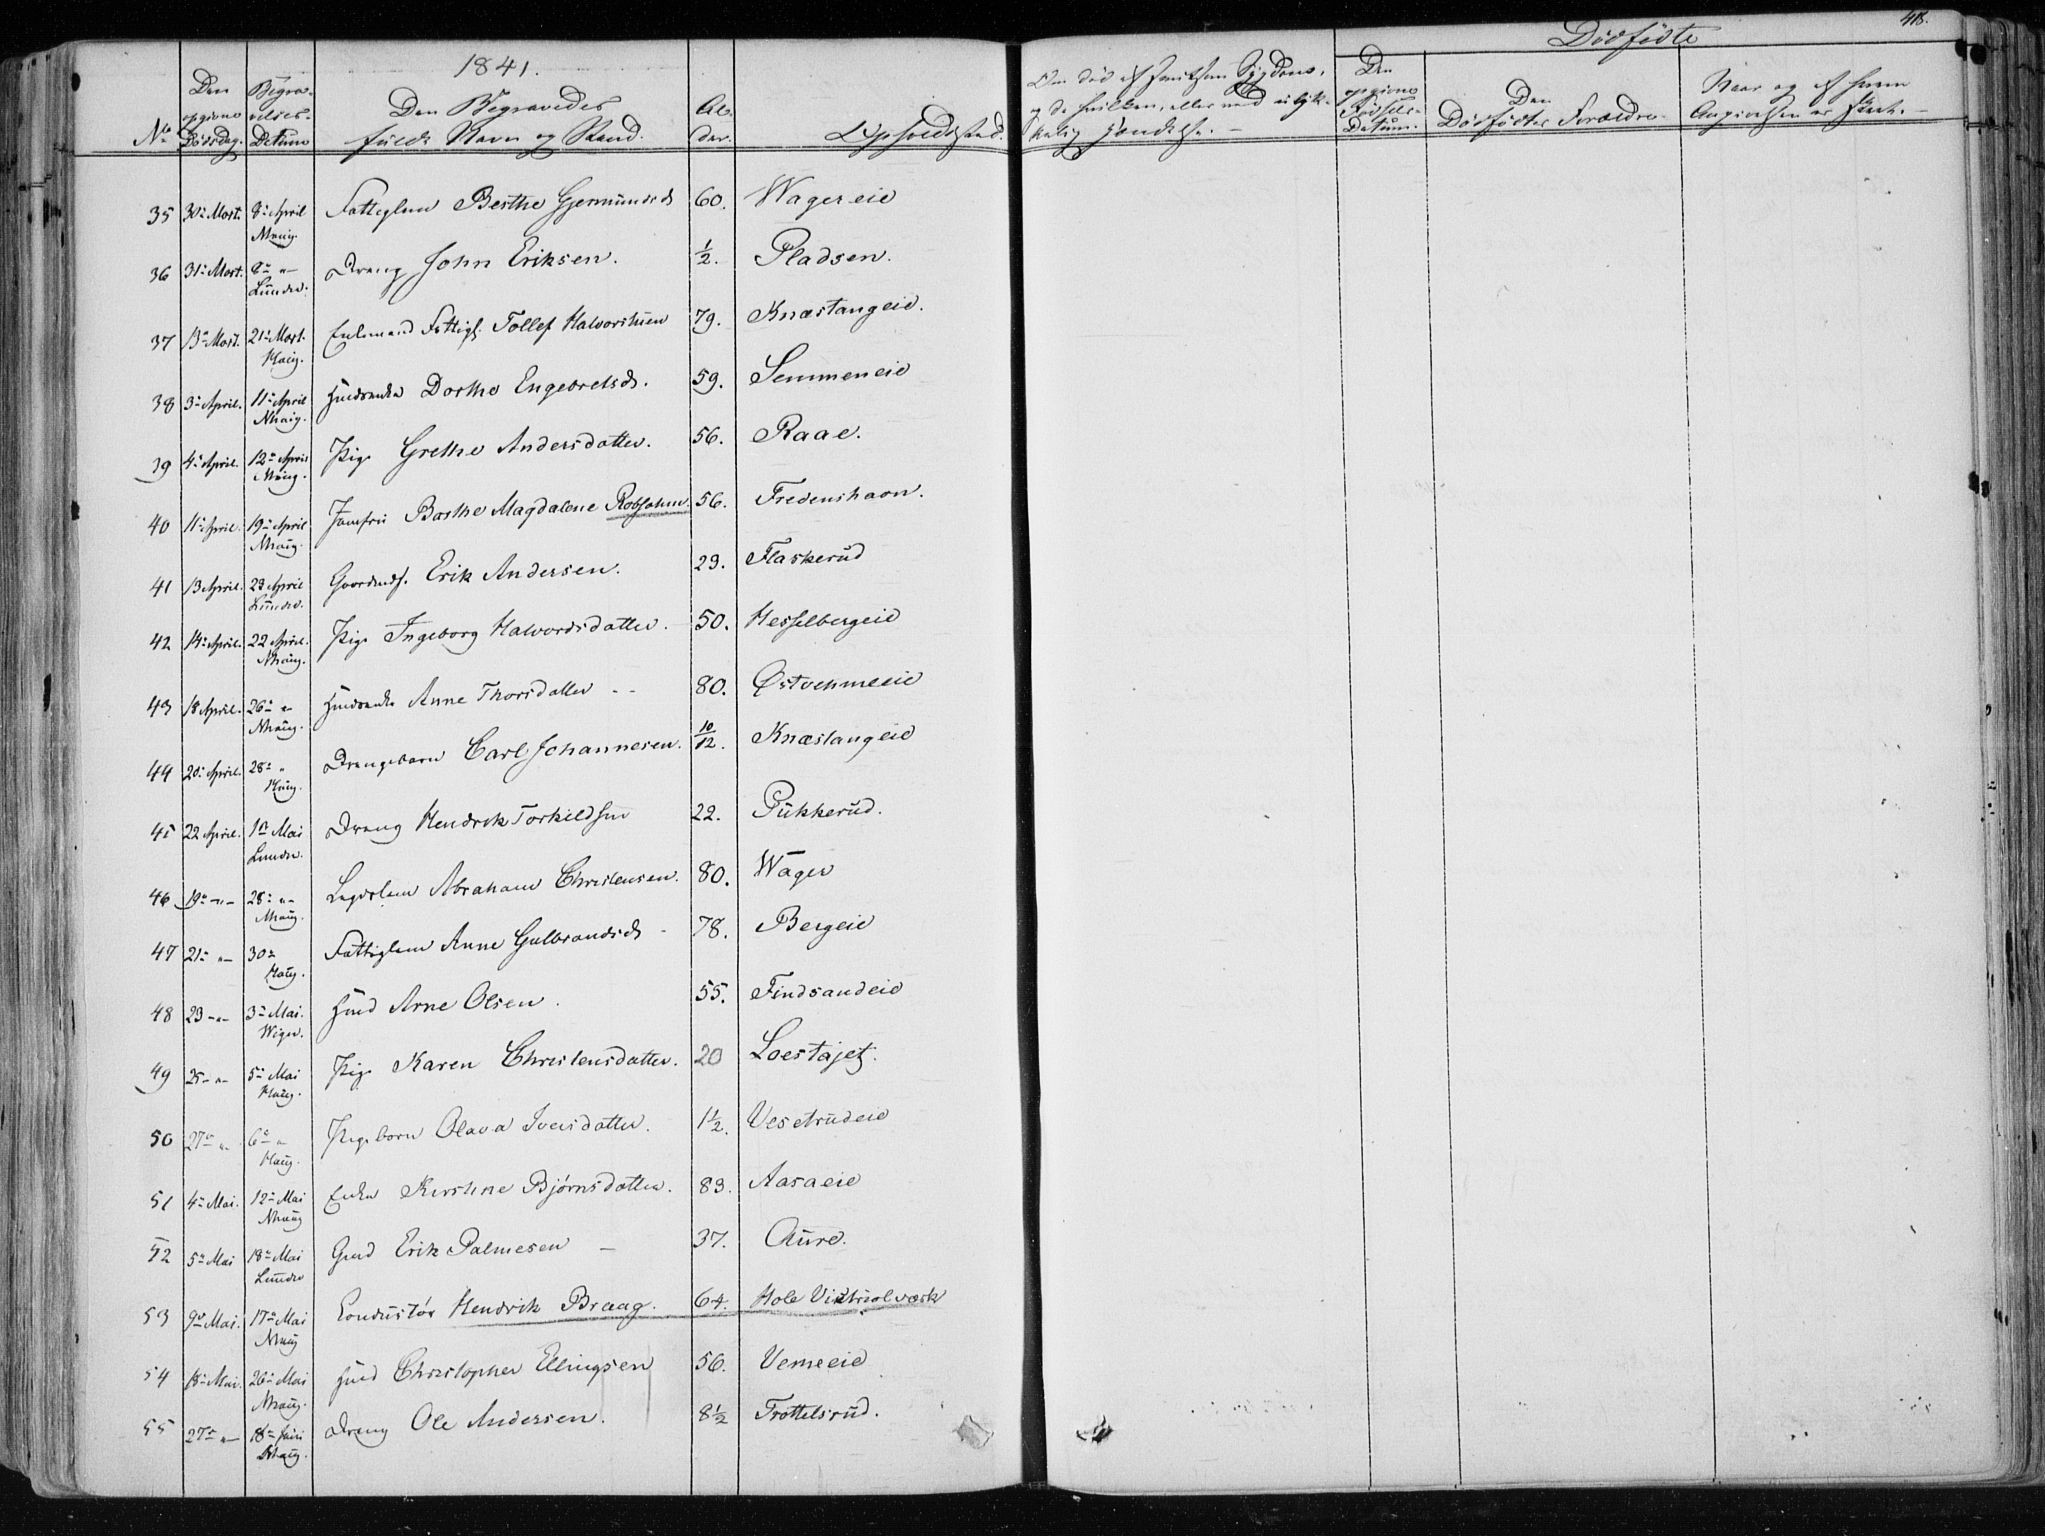 1841.
Dødfødte
418.
No
Den opgivne Dødsdag.
Begravelses-Datum
Den Begravedes fulde Navn og Stand.
Alder.
Opholdssted.
Den opgivne Fødsels-Datum.
Den Dødfødtes Forældre.
Naar og af hvem Angivelsen er skeet.
35 30te Mart. 8de April Nhaug. Fattiglem Berthe Gjermundsd 60. Wagereie
36 31te Mart. 8de "– Lunder. Dreng John Eriksen. ½. Pladsen.
37 13de Mart. 21de Mart. Haug. Enkemand Fattigl. Tollef Halvorsen 79. Knæstangeie.
38 3de April. 11te April Nhaug. Huusmke Dorthe Engebretsd. 59. Semmeneie
39 4de April. 12te April Nhaug. Pige Grethe Andersdatter. 56. Raae.
40 11te April. 19de April Nhaug. Jomfru Barthe Magdalene Robsahm. 56. Fredenshavn.
41 13 April. 23 April Lunder. Gaardmds. Erik Andersen. 23. Flaskerud
42 14de April. 22 April. Nhaug. Pige Ingeborg Halvordsdatter. 50. Hesselbergeie
43 18 April. 26de "– Nhaug. Huusmke Anne Thorsdatter - - 80. Østvehmeeie
44 20de April. 28de " Haug. Drengebarn Carl Johannesen. 10/12. Knæstangeie
45 22 April. 1ste Mai Lunder. Dreng Hendrik Torkildsen 22. Pukkerud.
46 19de –"– 28de "– Nhaug. Lægdslem Abraham Christensen. 80. Wager
47 21de "– 30te Haug. Fattiglem Anne Gulbrandsd - 78. Bergeie
48 23 –"– 3de Mai. Wiger. Huusmd Arne Olsen. 55. Findsandeie
49 25 –"– 5te Mai Haug. Pige Karen Christensdatter. 20 Loestajet.
50 27de "– 6te "– Haug. Pigebarn Olava Iversdatter. 1½. Vesetrudeie
51 4de Mai. 12te Mai Nhaug Enke Kirstine Bjørnsdatter. 83. Aasaeie
52 5te Mai 18de Mai Lunder Gmd Erik Palmesen – 37. Aure.
53 9de Mai. 17de Mai Nhaug Conductør Hendrik Braag. 64. Hole Vitriolværk
54 18de Mai. 26de Mai Nhaug. Huusmd Christopher Ellingsen 56. Vemeeie
55 27de "– 18de Juni Nhaug. Dreng Ole Andersen. 8½ Trøttelsrud.